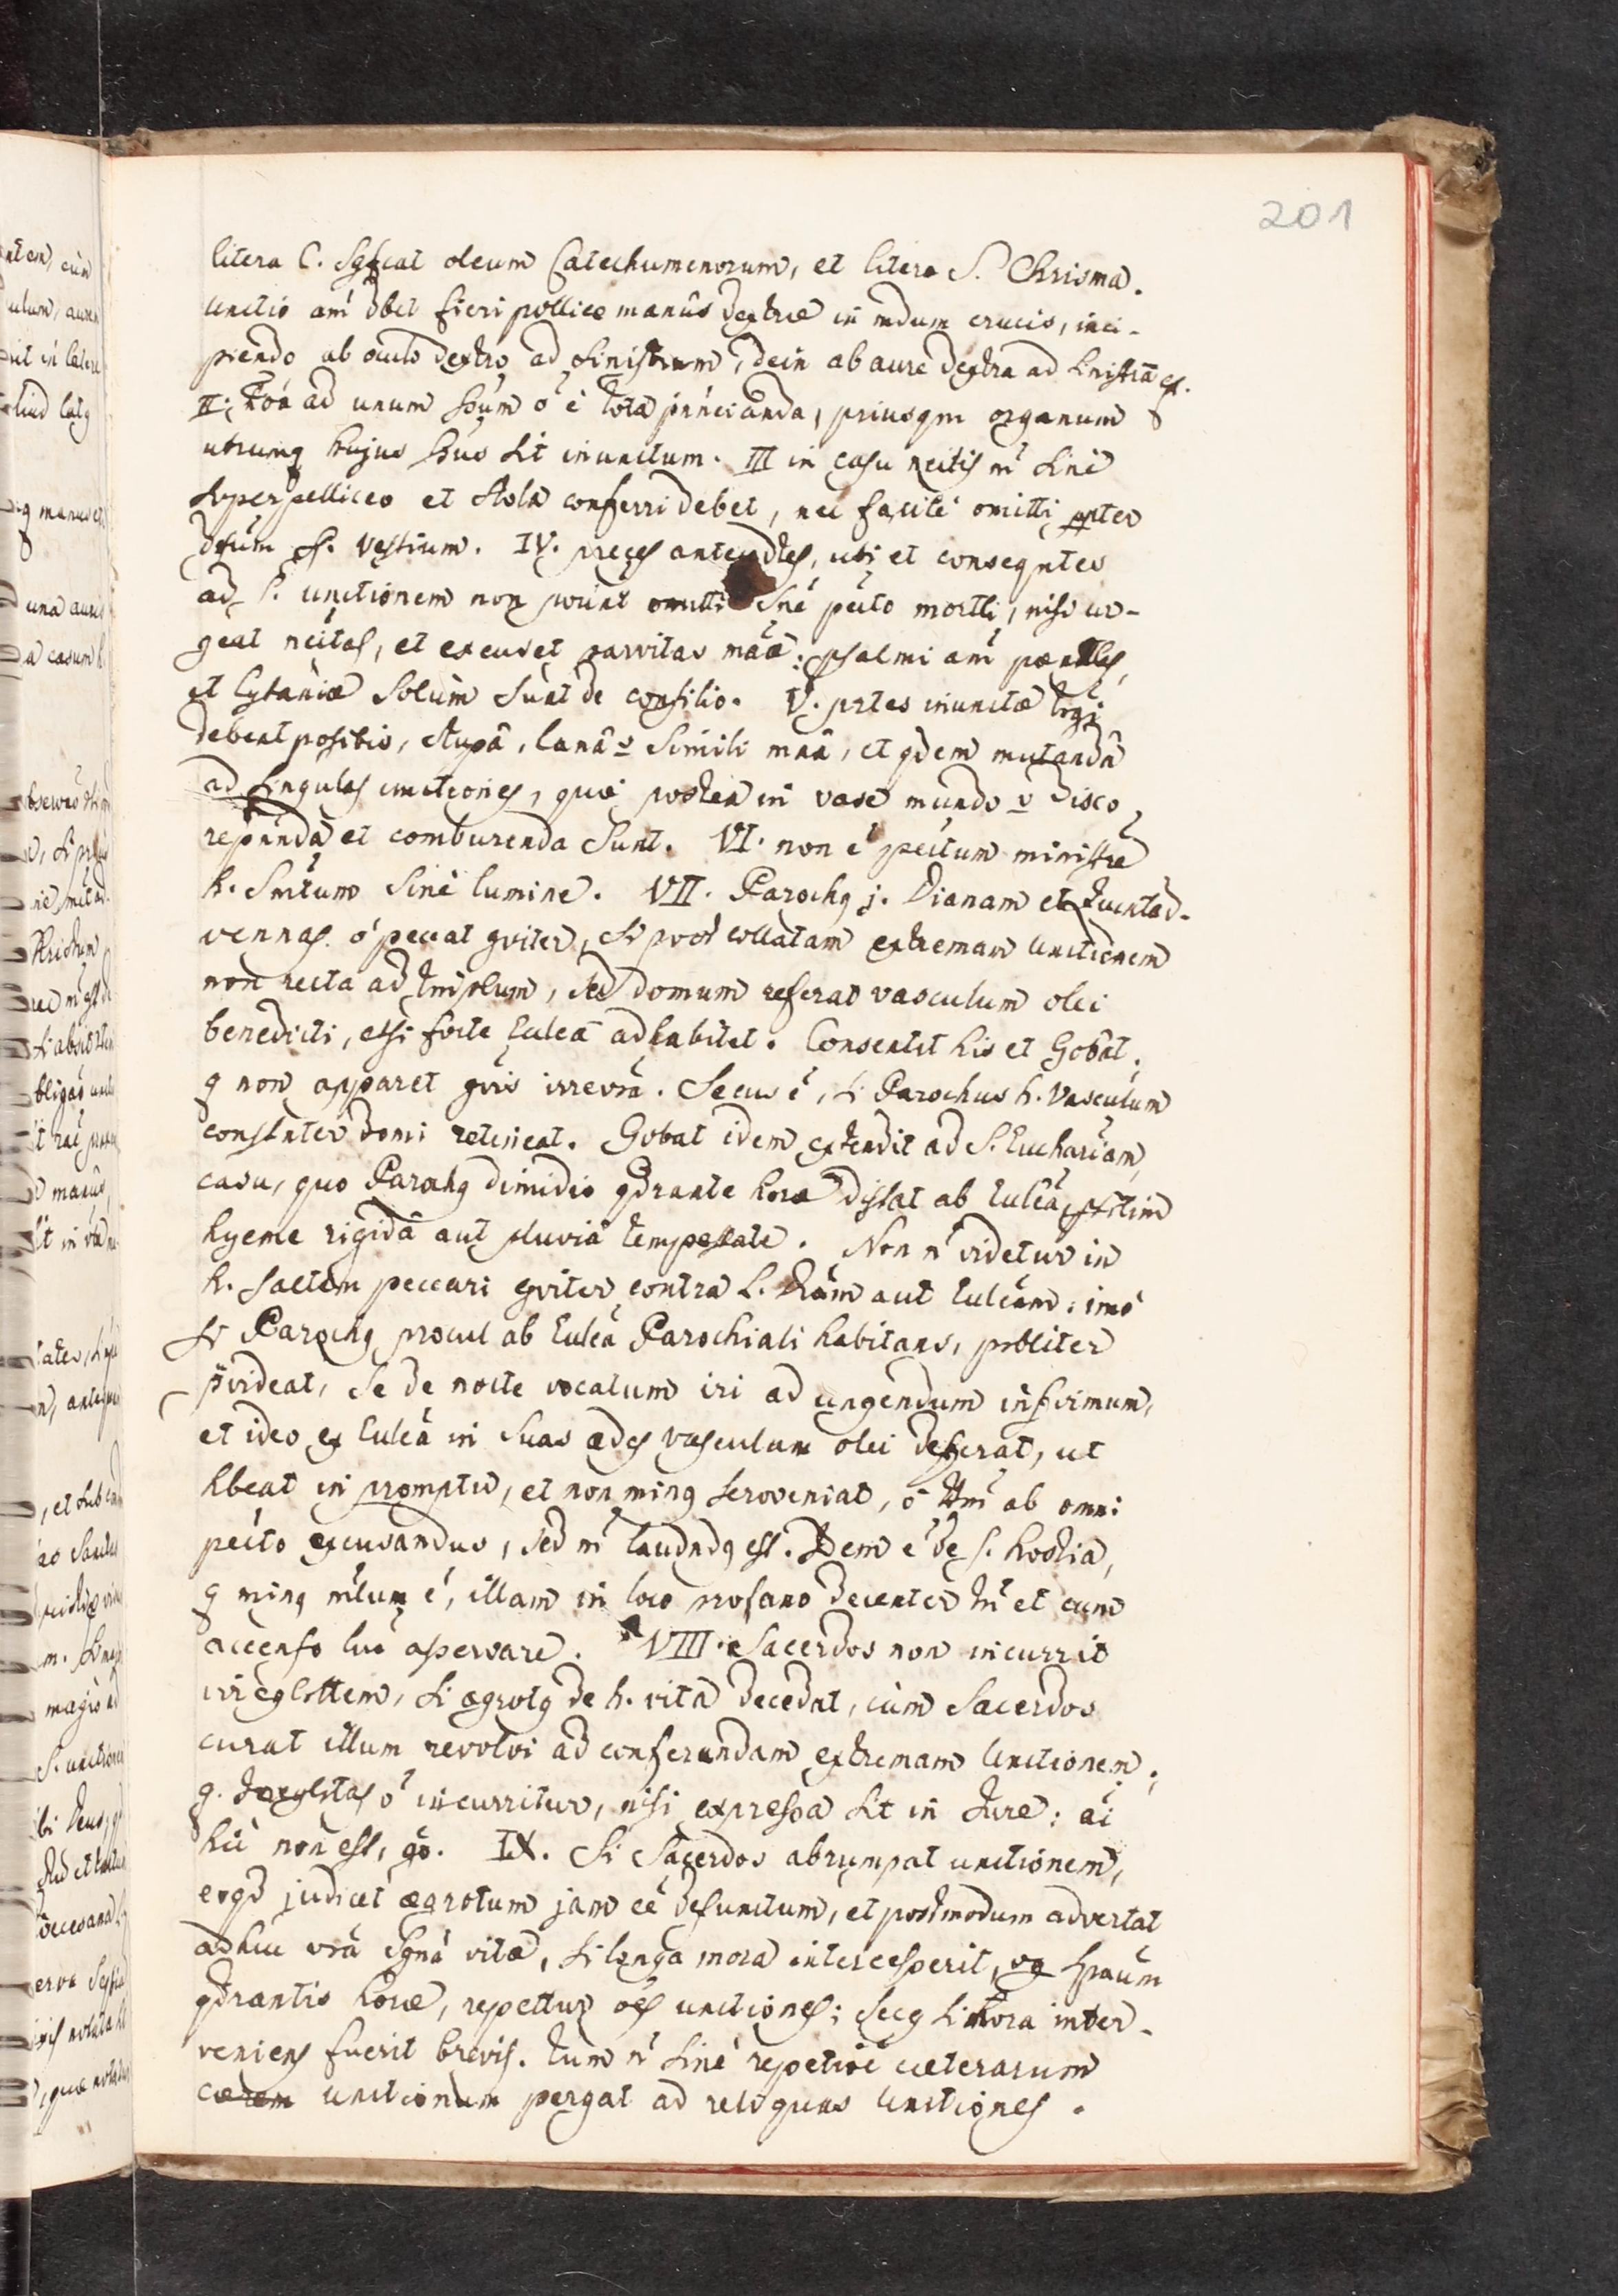 201
litera C. Sgfcat oleum Catechumenorum, et litera S. Chrisma.
Unctio am̃ dbet fieri pollice manûs dextræ in mdum crucis, inci-
piendo ab oculo dextro ad sinistrum, dein ab aure dextra ad sinistrā
II. ad unum sõum õ ẽ tota, priusqm organum
utrumq hujus sit inunctum. III in casu nccitis m̃ sine
superpelliceo et stola conferri debet, nec facile omitti ppter
dfum st. vestium. IV. preces antecdtes, uti et conseqntes
ad S. unctionem non pount omitti sne pcc̃to mortli, nisi ur-
geat nccitas, et excuset parvitas mãæ: psalmi am̃ pænitles,
et Lytaniæ solùm sunt de consilio. V. prtes inunctæ tergi
debent, stupâ, lanâ v simili mãâ, et qdem mutandâ
ad singulas unctiones, quæ postea in vase mundo v disco
repnenda et comburenda sunt. VI. non ẽ pccitum ministre
h. Smtum sine lumine. VII. Parochq j. Dianam et
vennas õ peccat gviter, si post collatam extremam Unctionem
non recta ad tmplum, sed domum referat vasculum olei
benedicti, etsi forte Eulea adhabitet. Consentit his et Gobat.
q non apparet gvis irrevra. Secus ẽ, si Parochus h. vasculum
constnter domi retineat. Gobat idem extendit ad S. Euchariam,
casu, quo Parochq dimidio qdrante horæ distat ab Eulea, prtim
hyeme rigidâ aut pluviâ tempestate. Non n̄ videtur in
h. saltem peccari gviter contra S. aut Euleam: imò
si Parochq procul ab Eulea Parochiali habitans, probliter
prvideat, se de nocte vocatum iri ad ungendum infirmum,
et ideo ex Eulea in suas ædes vasculum olei deferat, ut
hbeat in promptu, et non minq sero veniat, õ tm̃ ab omni
pccto excusandus, sed m̃ laudndq est. Idem ẽ de S. hostia,
q minq mlum ẽ, illam in loco profano decenter tn̄ et cum
accenso luẽ asservare. VIII. Sacerdos non incurrit
irreglrttem, si ægrotq de h. vita decedat, cùm Sacerdos
curat illum revolvi ad conferendam extremam Unctionem;
q. irreglrtas õ incurritur, nisi expressa sit in Jure: ac̃
hìc non est, gõ. IX. Si Sacerdos abrumpat unctionem,
eoqd judicet ægrotum jam eẽ defunctum, et postmodum advertat
adhuc vra sgna vitæ, si longa mora intercesserit, vg spatium
qdrantis horæ, repettur oẽs unctiones; secq si mora inter-
veniens fuerit brevis. tum n̄ sine repetioẽ cæterarum
unctionum pergat ad reliquas Unctiones.